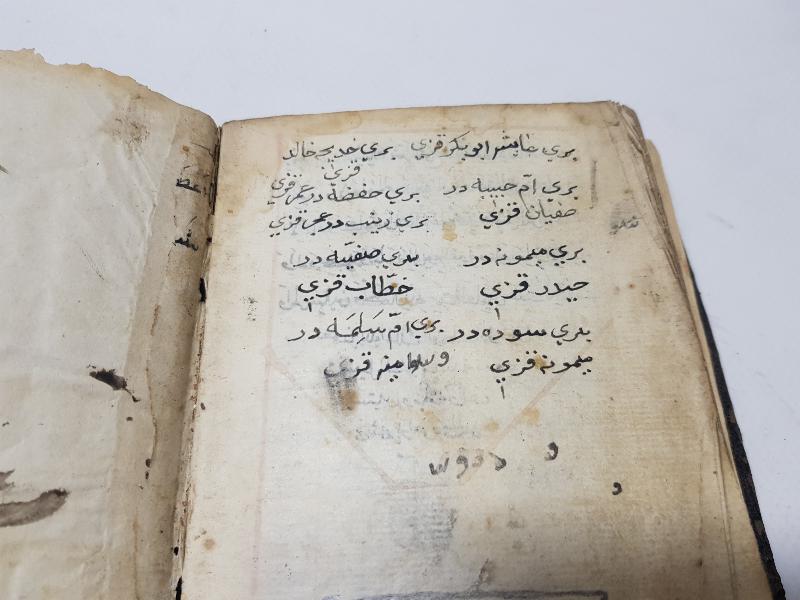 بري عايشه ابو بكر قزي بري خديجه خالد
قزي
بري امّ حبيبه در بري حفضه در عمر قزي
صفيان قزي بري زينب در عمر قزي
بري ميمونه در بري صفيّه در
حيدر قزي خطّاب قزي
بري سوده در بري امّ سَلِمَه در
ميمونه قزي قزي